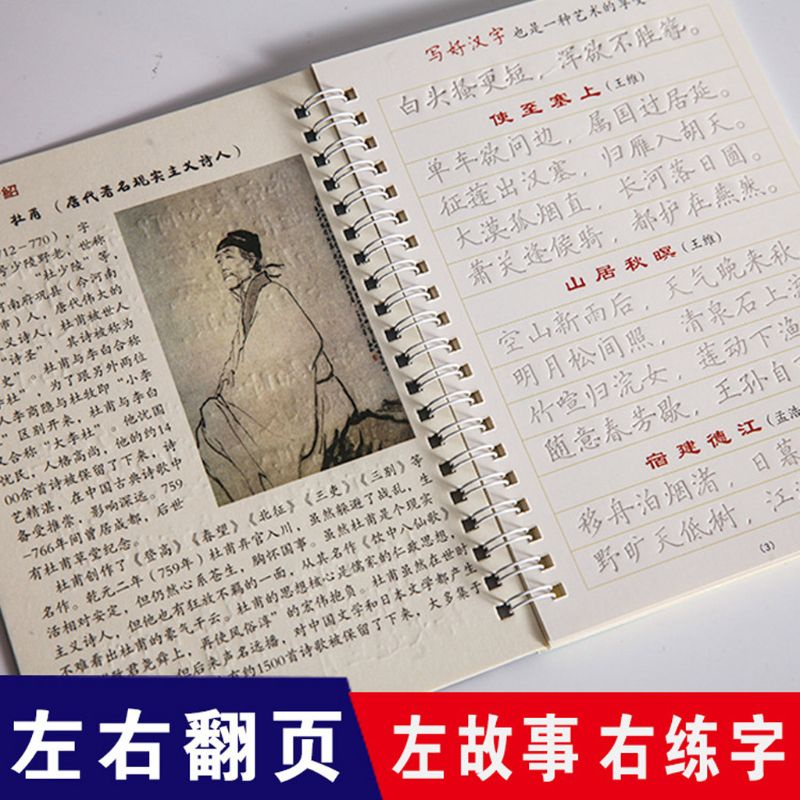 绍
杜甫（唐代著名现实主义诗人）
712-770)，字
号少陵野老，世称
"、"杜少陵"等，
河南府巩县（今河
市）人，唐代伟大的
义诗人，杜甫被世人
"诗圣"，其诗被称为
史"。杜甫与李白合称
李杜"，为了跟另外两位
人李商隐与杜牧即"小李
"区别开来，杜甫与李白
又合称"大李杜"。他忧国
忧民，人格高尚，他的约14
00余首诗被保留了下来，诗
艺精湛，在中国古典诗歌中
备受推崇，影响深远。759
-766年间曾居成都，后世
有杜甫草堂纪念。
杜甫创作了《登高》《春望》《北征》《三吏》《三别》等
名作。乾元二年（759年）杜甫弃官入川，虽然躲避了战乱，生
活相对安定，但仍然心系苍生，胸怀国事。虽然杜甫是个现实
主义诗人，但他也有狂放不羁的一面，从其名作《饮中八仙歌》
不难看出杜甫的豪气干云。杜甫的思想核心是儒家的仁政思想，
致君尧舜上，再使风俗淳"的宏伟抱负。杜甫虽然在世时
但后来声名远播，对中国文学和日本文学都产生
约1500首诗歌被保留了下来，大多集于
写好汉字 也是一种艺术的享受
白头搔更短，浑欲不胜簪。
使至塞上（王维）
单车欲问边，属国过居延。
征蓬出汉塞，归雁入胡天。
大漠孤烟直，长河落日圆。
萧关逢候骑，都护在燕然。
山居秋暝（王维）
空山新雨后，天气晚来秋
明月松间照，清泉石上流
竹喧归浣女，莲动下渔
随意春芳歇，王孙自
宿建德江（孟浩
移舟泊烟渚，日暮
野旷天低树，江
(3)
左右翻页
左故事 右练字